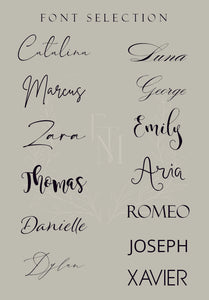 FONT SELECTION
Catalina
Luna
Marcus
George
Zara
Emily
Thomas
Aria
Danielle
ROMEO
Dylan
JOSEPH
XAVIER